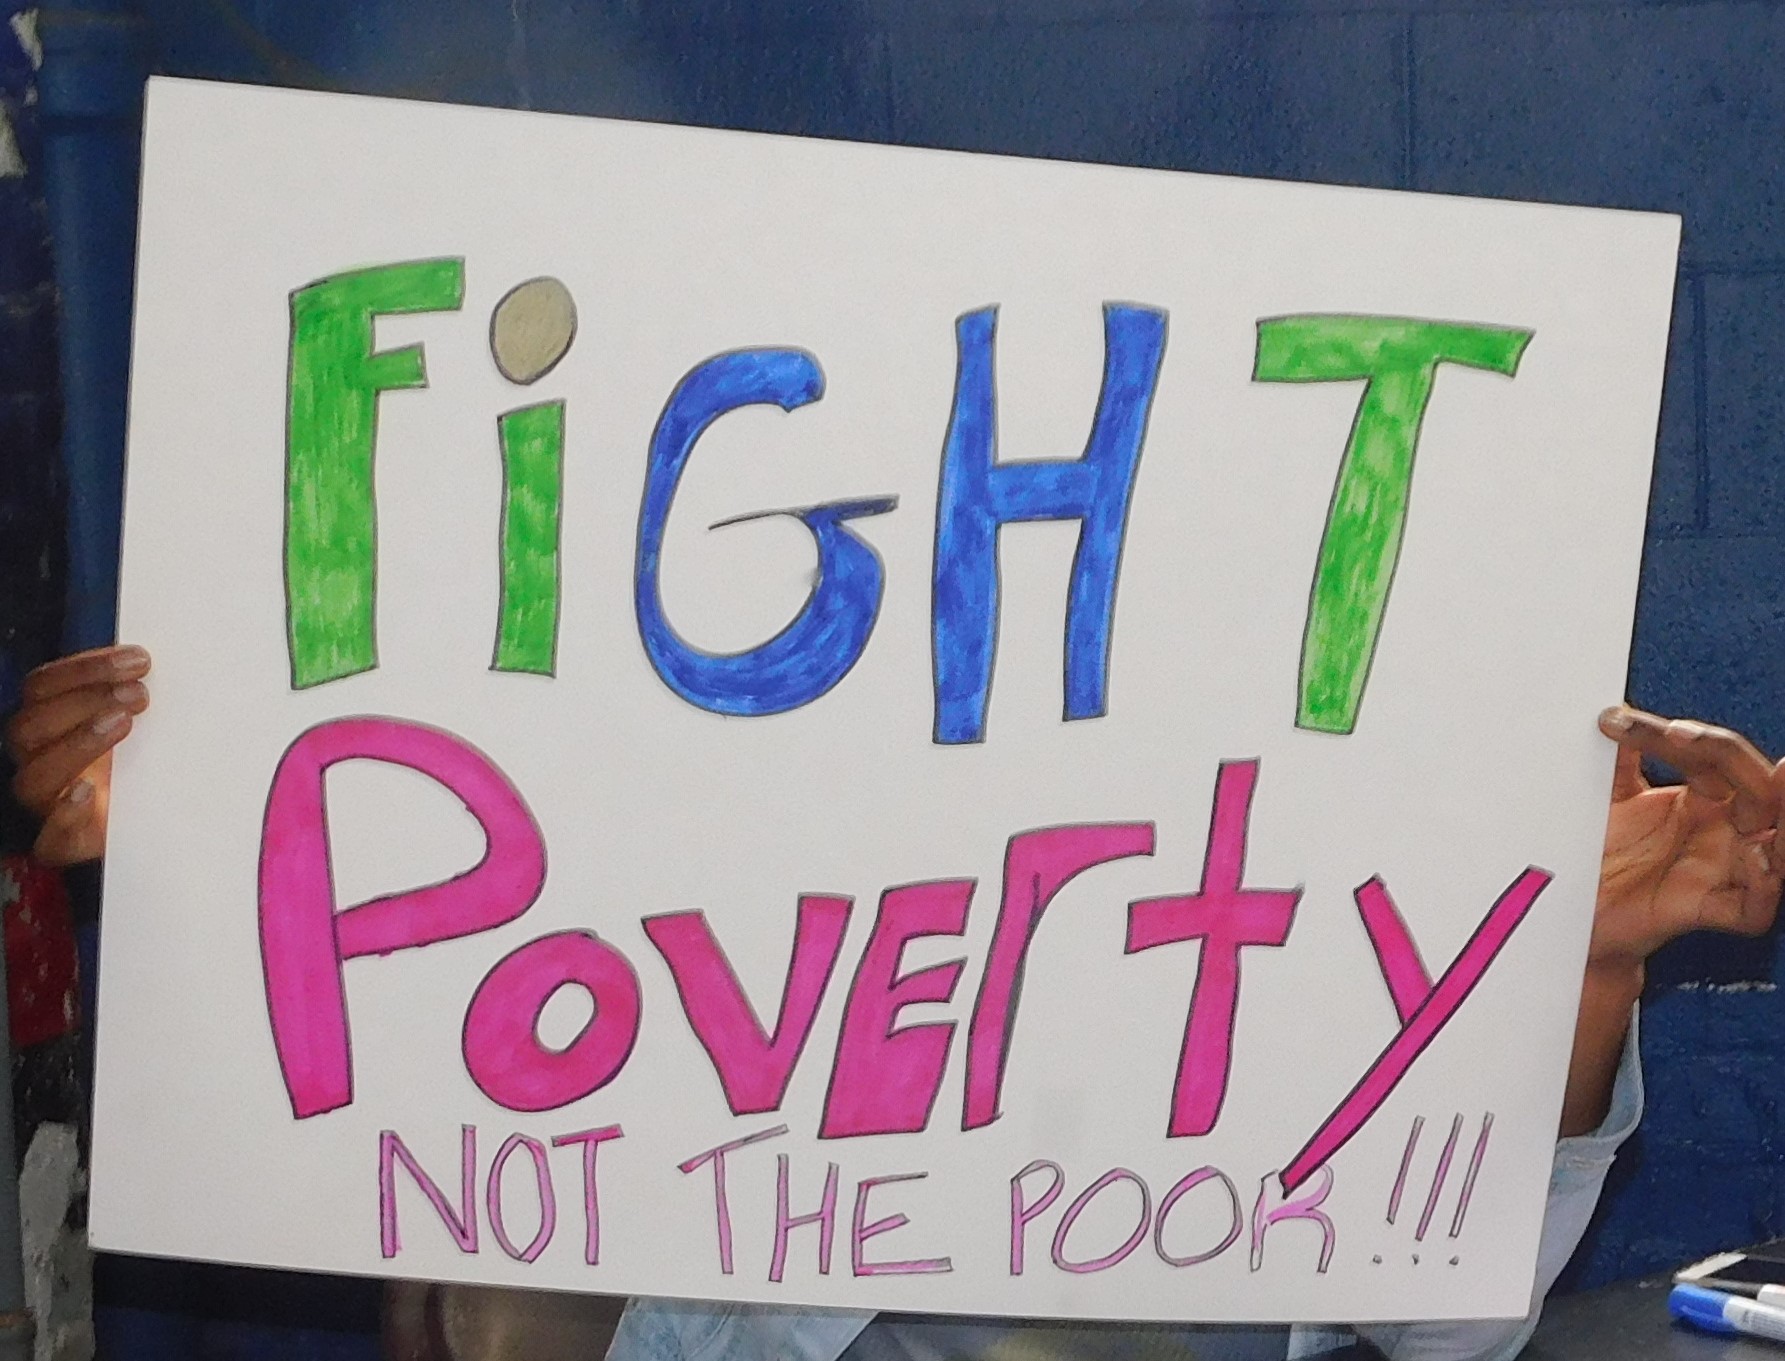 FiGHT
PovErty
NOT THE POOR!!!